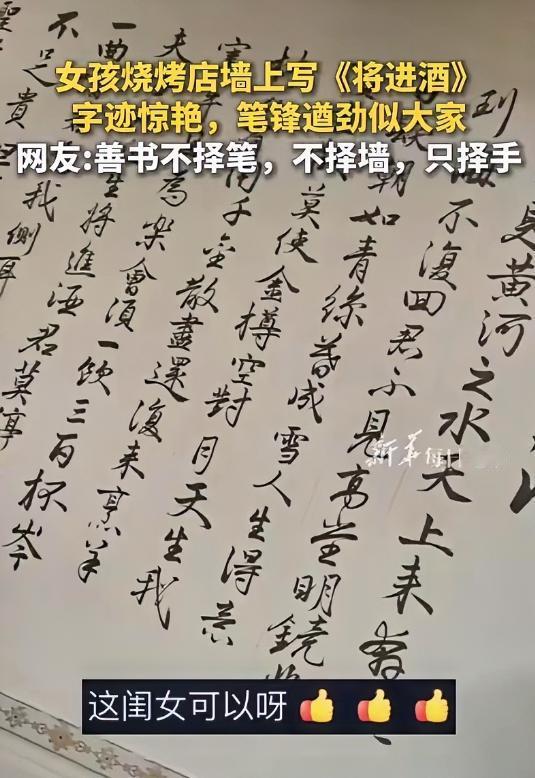 女孩烧烤店墙上写《将进酒》
字迹惊艳，笔锋遒劲似大家
网友:善书不择笔，不择墙，只择手
見黃河之水天上来奔
到海不復回君不見高堂明鏡
朝如青絲暮成雪人生得意
莫使金樽空對月天生我
用千金散盡還復来烹羊
宰
為樂會須一飲三百杯岑
夫
生將進酒君莫亭
一曲
我側耳
不足貴
聖
新华每日
这闺女可以呀👍👍👍